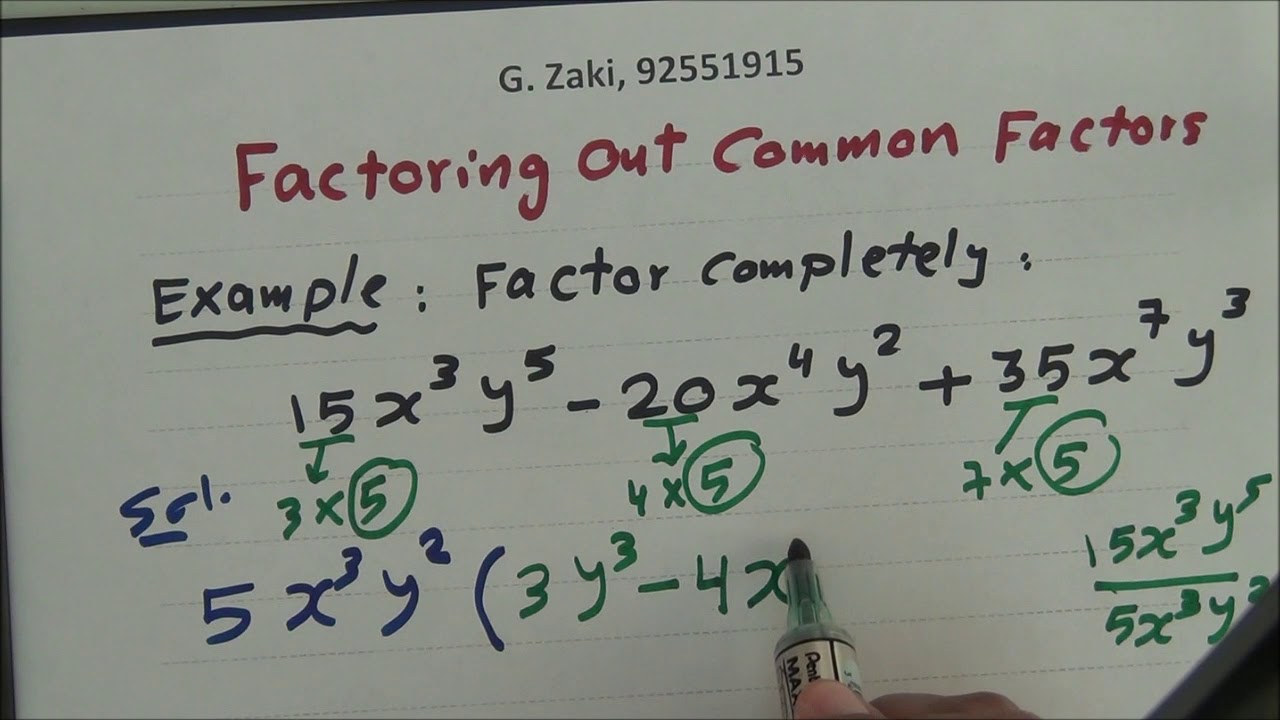 G. Zaki, 92551915
Factoring Out Common Factors
Example: Factor completely:
15x³y⁵ - 20x⁴y² + 35x⁷y³
3 × 5 4 × 5 7 × 5
Sol.
5x³y² (3y³ - 4x
15x³y⁵
5x³y²